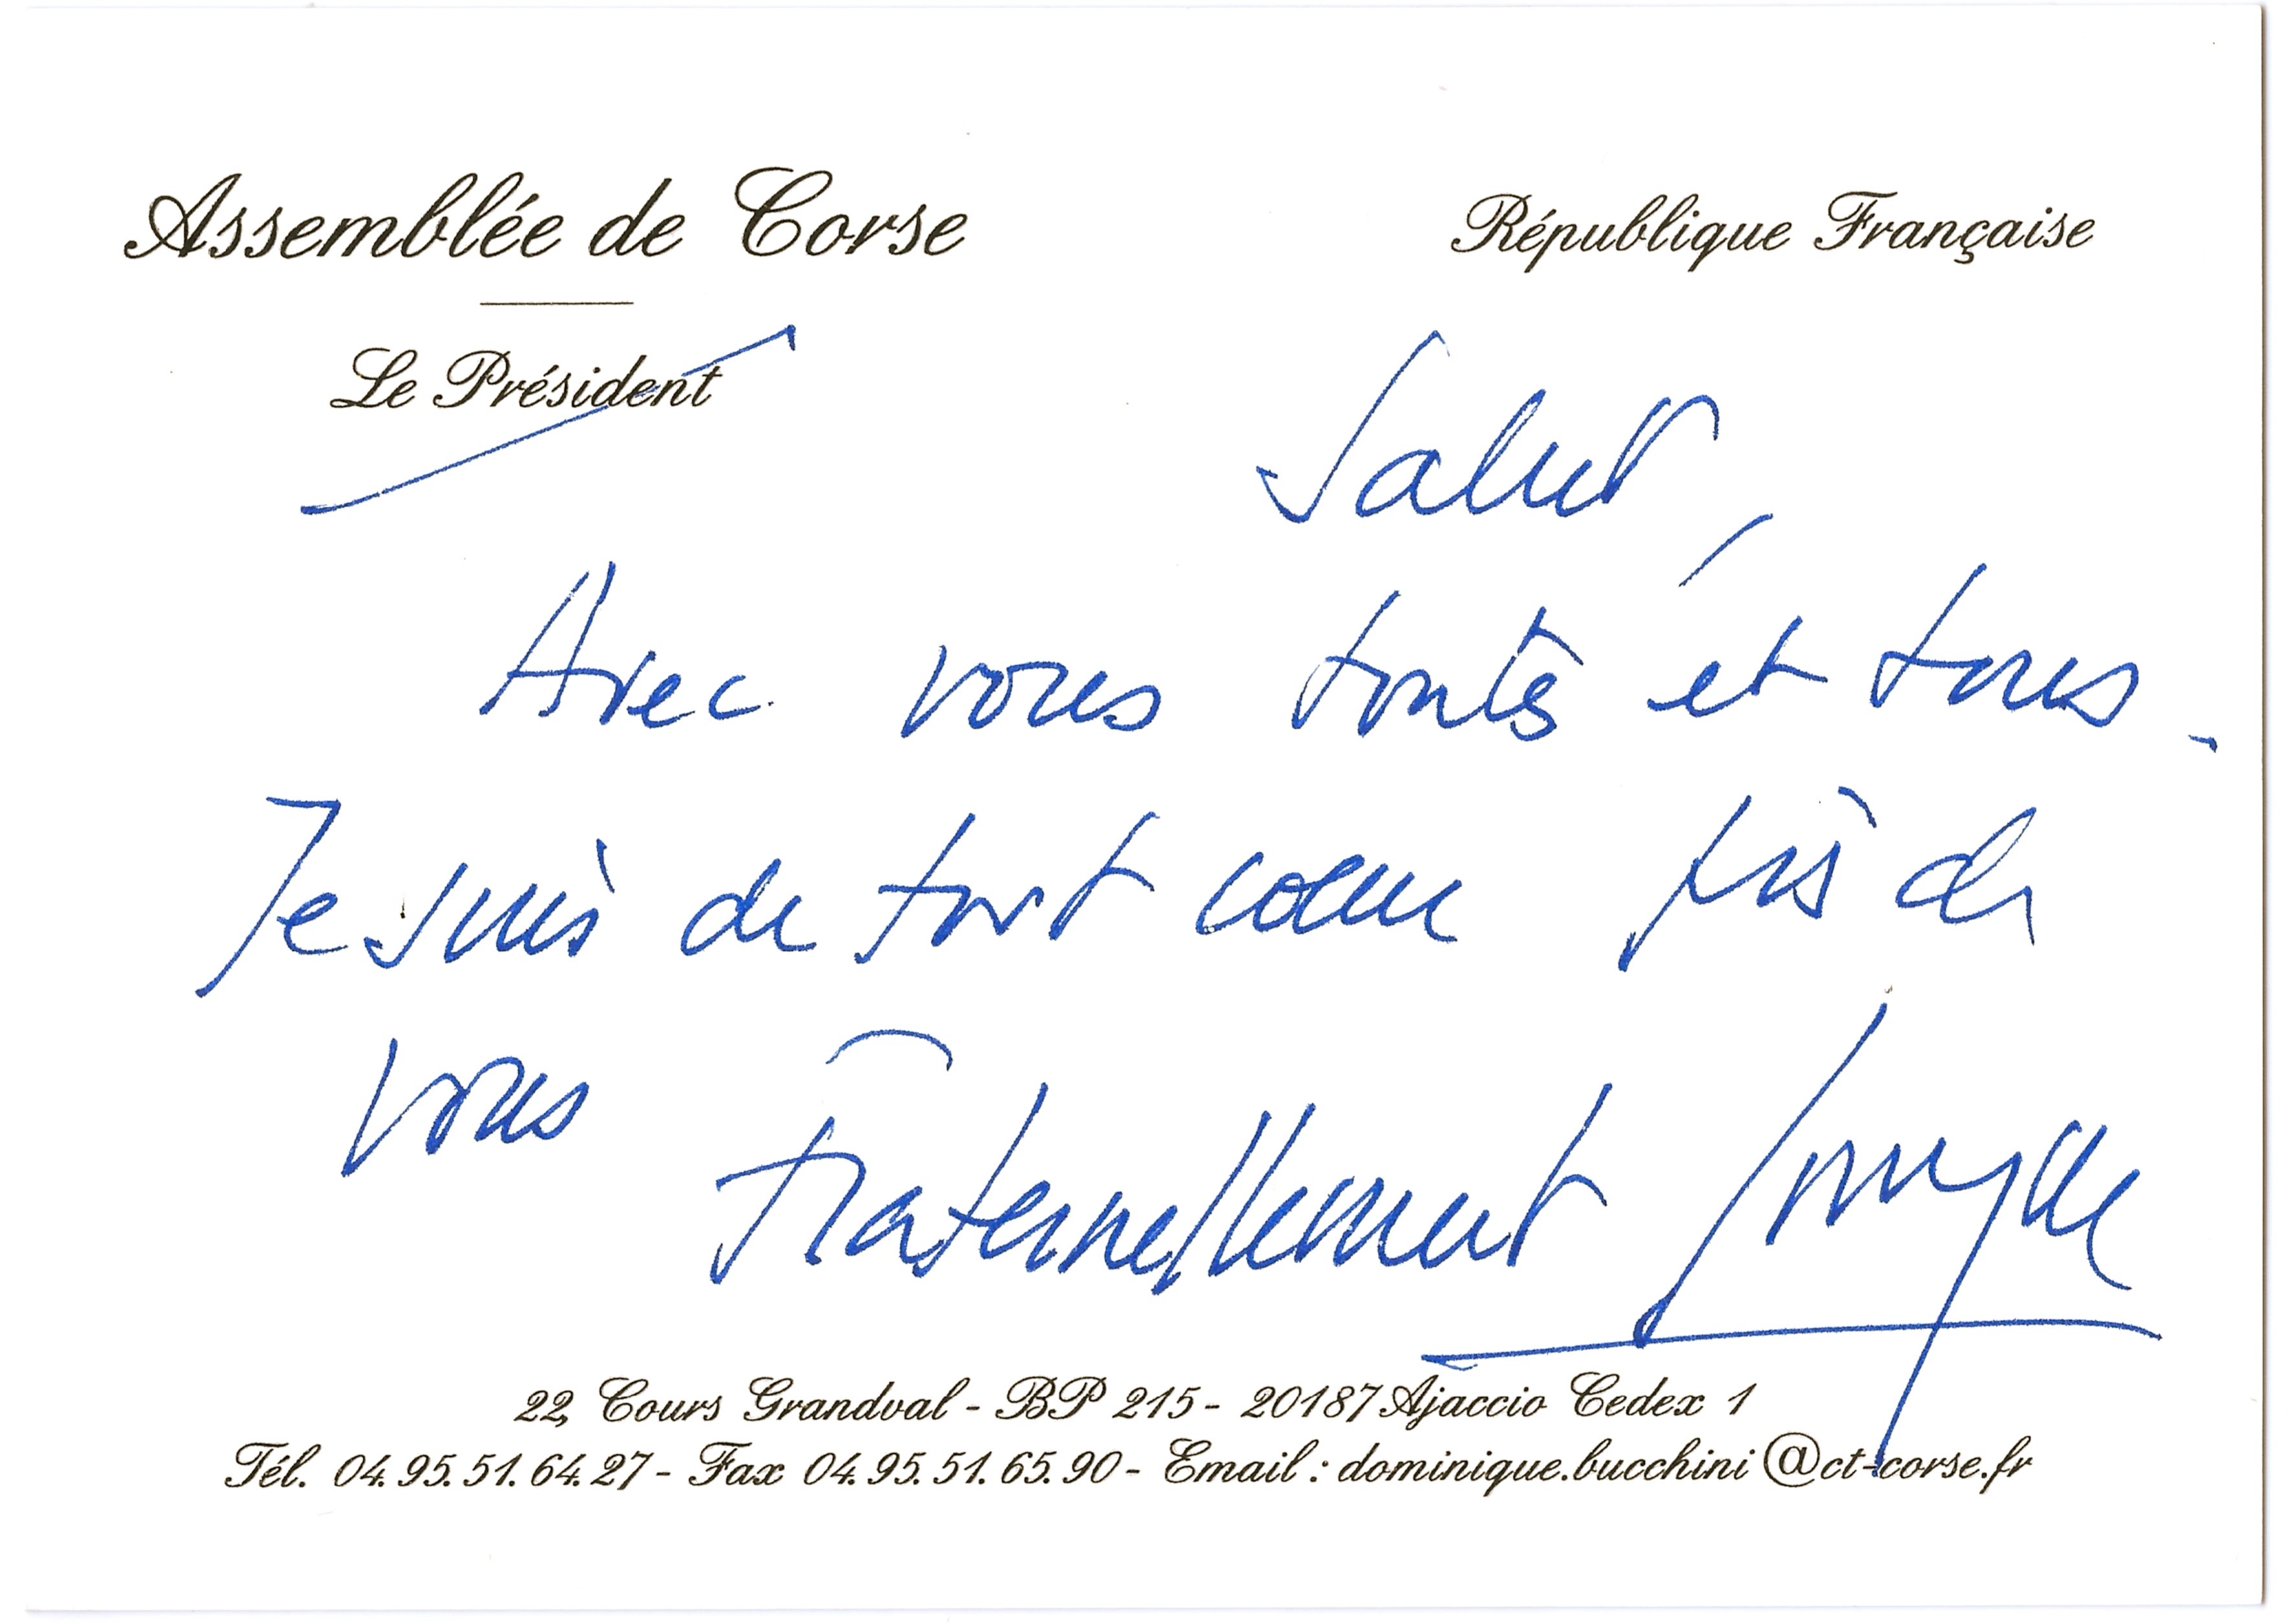 Assemblée de Corse
République Française
Le Président
Salut,
Avec vous toutes et tous.
Je suis de tout cœur près de
vous
Fraternellement
22, Cours Grandval - BP 215 - 20187 Ajaccio Cedex 1
Tél. 04.95.51.64.27 - Fax 04.95.51.65.90 - Email : dominique.bucchini@ct-corse.fr